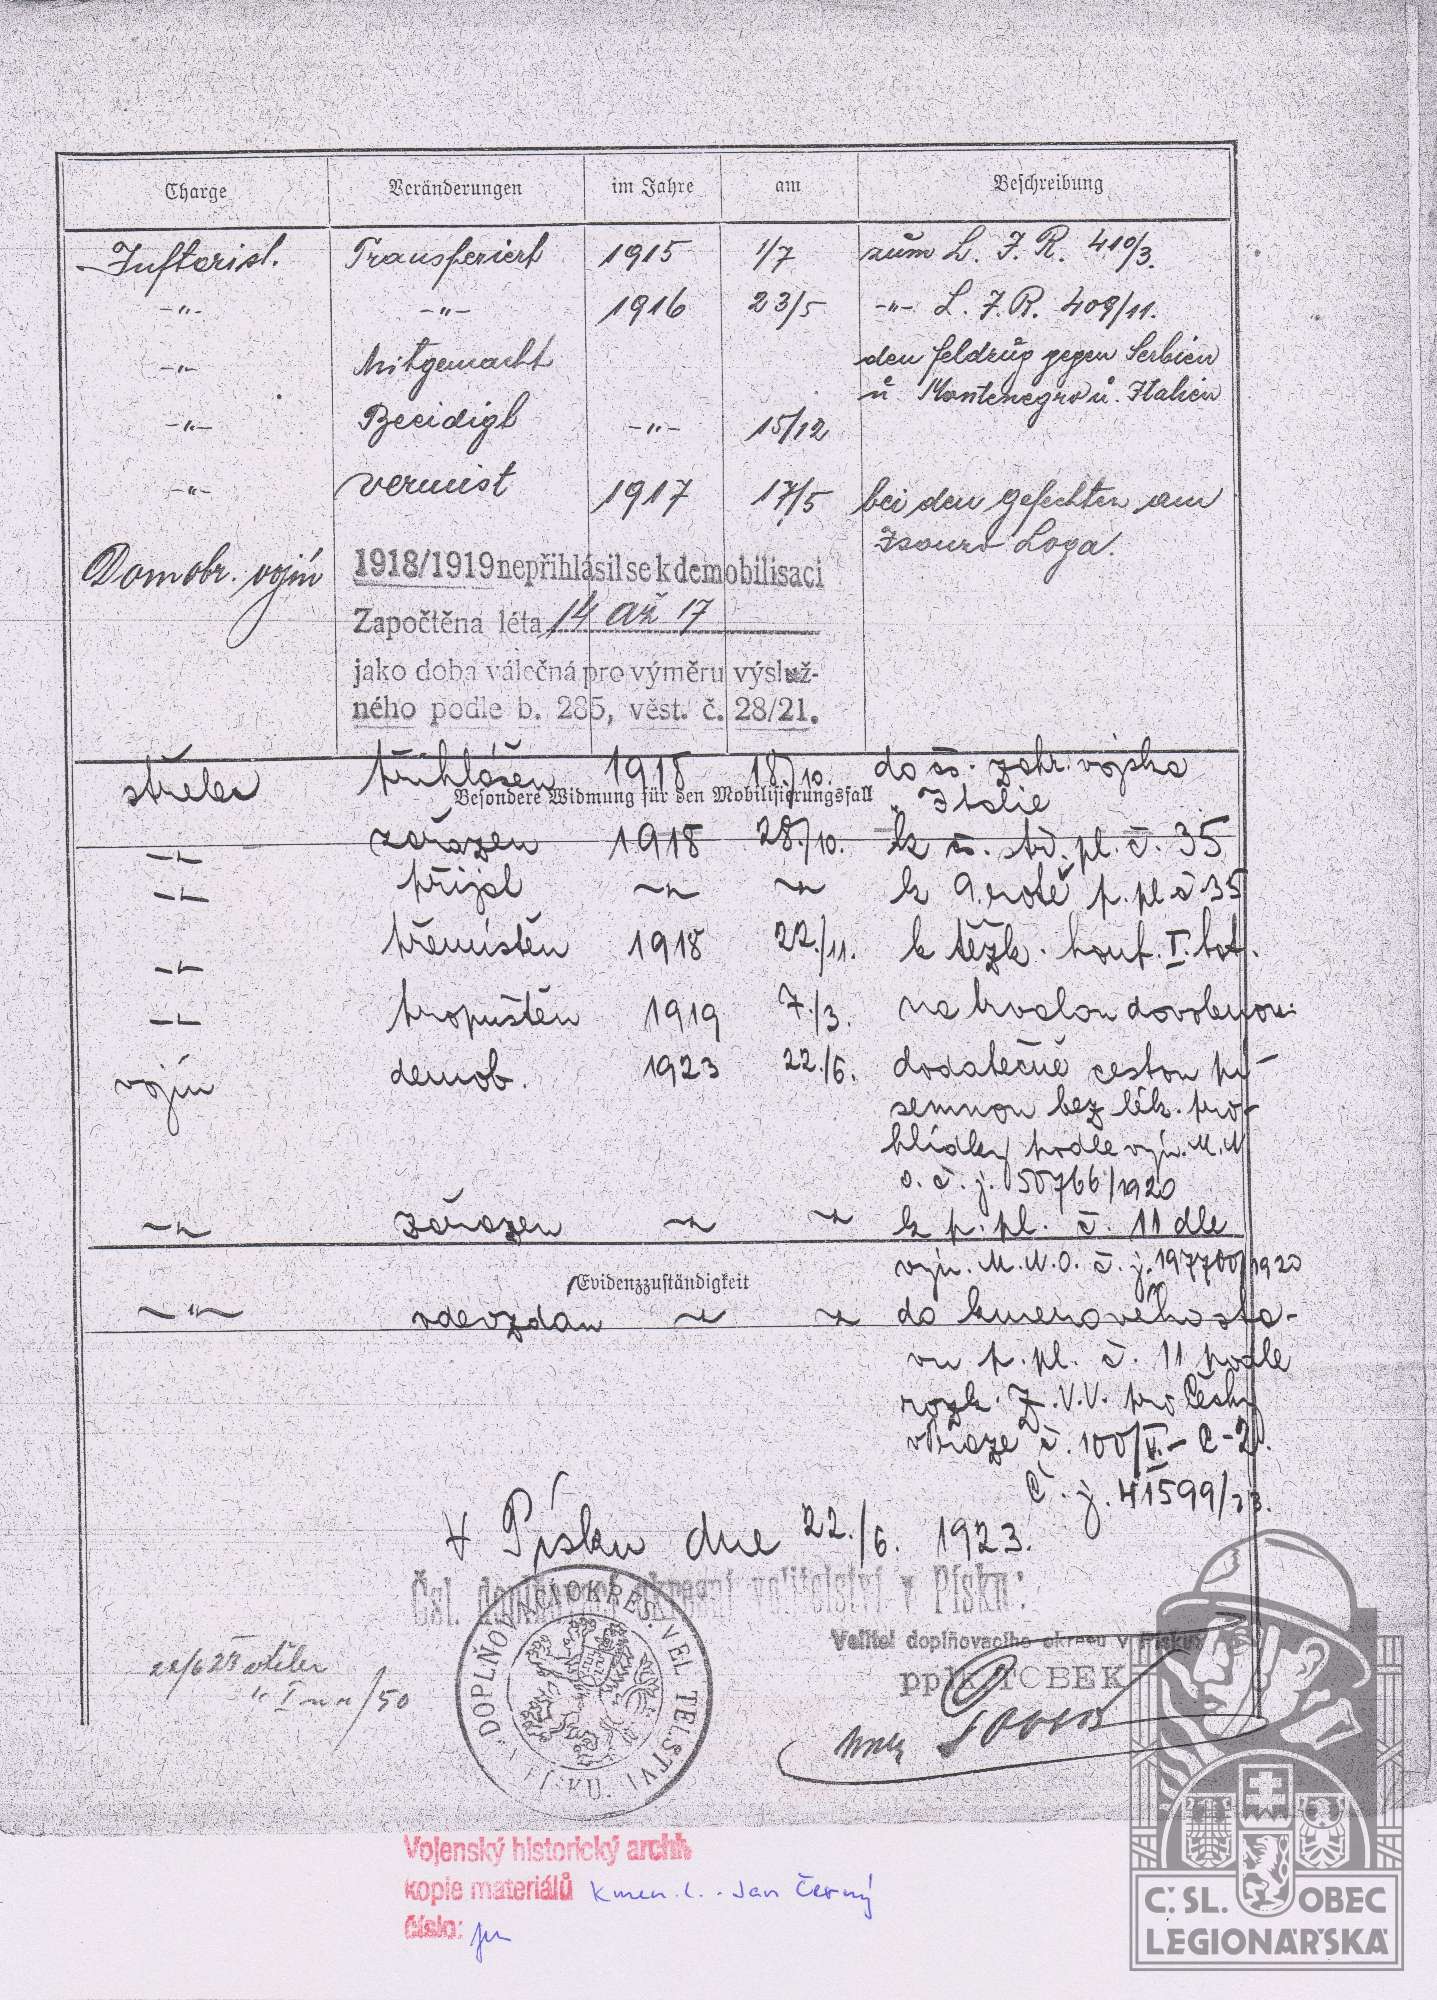 Charge Veränderungen im Jahre am Beschreibung
Infterist. Transferiert 1915 1/7 zum L. I. R. 410/3.
-"- -"- 1916 23/5 -"- L. I. R. 409/11.
-"- Mitgemacht den Feldzug gegen Serbien
u. Montenegro u. Italien
-"- Beeidigt -"- 15/12
-"- vermist 1917 17/5 bei den Gefechten am
Isonzo Loga.
Domobr. vojín 1918/1919 nepřihlásil se k demobilisaci
Započtěna léta 14 až 17
jako doba válečná pro výměru výsluž-
ného podle b. 285, věst. č. 28/21.
střelec přihlášen 1918 18./10. do čs. zahr. vojska
Besondere Widmung für den Mobilisierungsfall
v Italie
-"- zařazen 1918 28./10. k čs. stř. pl. č. 35
-"- přijal -"- -"- k 9. rotě p. pl. č 35
-"- přemístěn 1918 22./11. k těžk. houf. I. bat.
-"- propuštěn 1919 7./3. na trvalou dovolenou.
vojín demob. 1923 22./6. dodatečně cestou pí-
semnou bez lék. pro-
hlídky podle výn. M.N.
O. č. j. 50766/1920
-"- zařazen -"- -"- k p. pl. č. 11 dle
výn. M.N.O. č. j. 197700/1920
Evidenzzuständigkeit
-"- odevzdán -"- -"- do kmenového sta-
vu p. pl. č. 11 podle
rozk. Z.V.V. pro Čechy
v Praze č. 100/V.-C-2.
Č. j. 41599/23.
V Písku dne 22./6. 1923.
Čsl. doplňovací okresní velitelství v Písku:
DOPLŇOVACÍ OKRES. VELITELSTVÍ
Velitel doplňovacího okresu v Písku:
22/6 23 střelec
/50
Vojenský historický archiv
kopie materiálů kmen. l. - Jan Černý
číslo:
Č.SL. OBEC
LEGIONÁŘSKÁ